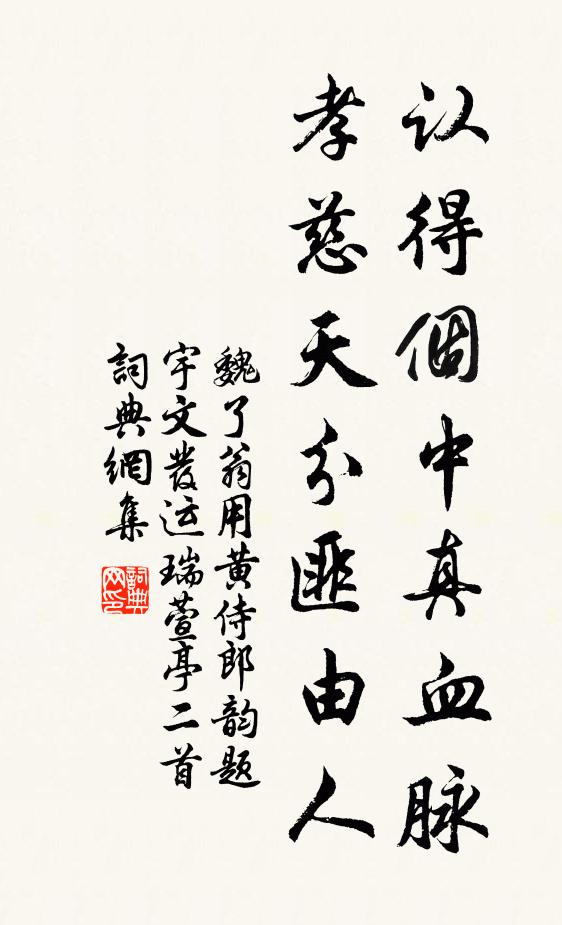 认得個中真血脉
孝慈天分匪由人
魏了翁用黄侍郎韵题
宇文發运瑞萱亭二首
詞典網集
詞典
网印